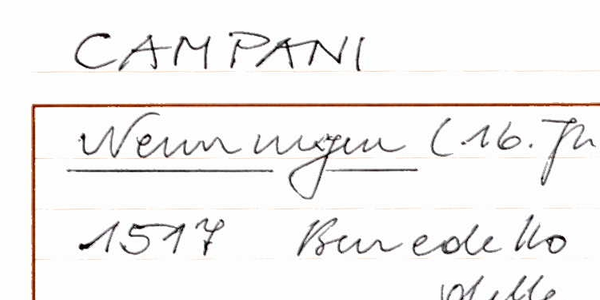 CAMPANI
Nennungen (16. Jh
1517 Benedetto